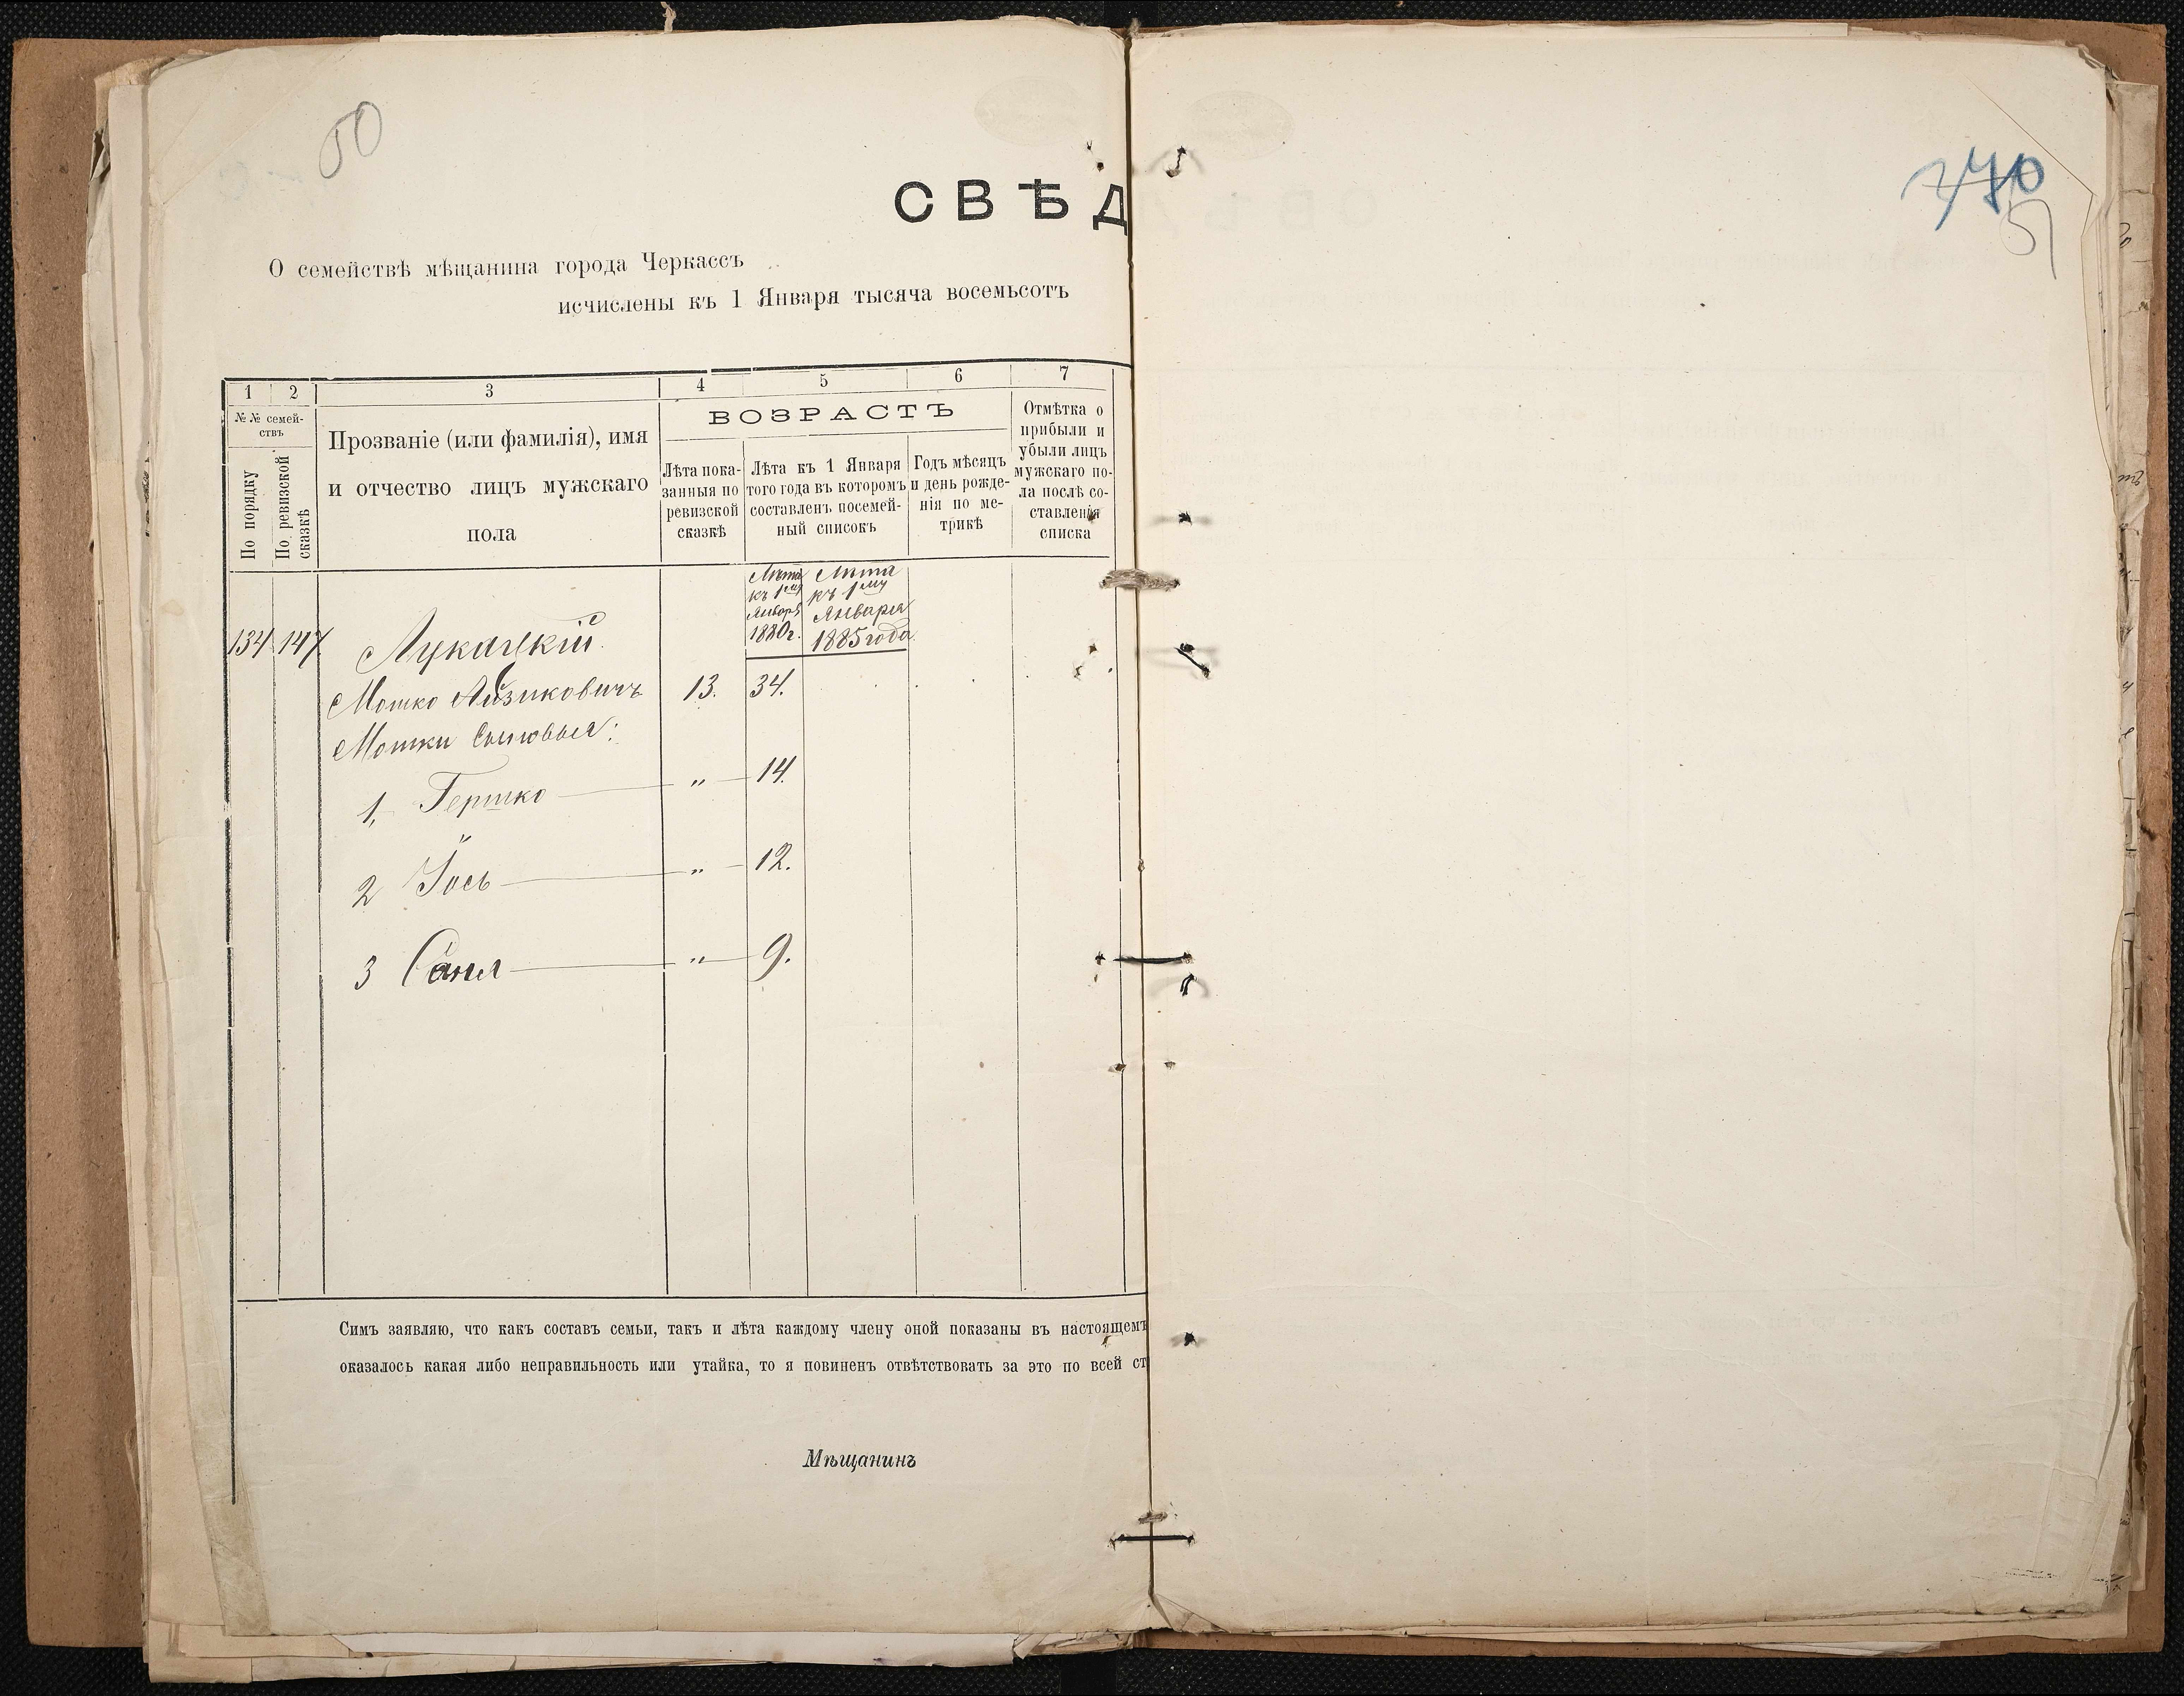 50
СВѢД
О семействѣ мѣщанина города Черкассъ
исчислены къ 1 Января тысяча восемьсотъ
1 2 3 4 5 6 7
№№ семействъ
По порядку
По ревизской сказкѣ
Прозваніе (или фамилія), имя
и отчество лицъ мужскаго
пола
ВОЗРАСТЪ
Лѣта пока-
занныя по
ревизской
сказкѣ
Лѣта къ 1 Января
того года въ которомъ
составленъ посемей-
ный списокъ
Годъ мѣсяцъ
и день рожде-
нія по ме-
трикѣ
Отмѣтка о
прибыли и
убыли лицъ
мужскаго по-
ла послѣ со-
ставленія
списка
Лѣта
къ 1му
Января
1880г.
Лѣта
къ 1му
Января
1885 года
134 147
Мошко Айзиковичъ 13. 34.
Мошки Сыновья:
1, Гершко — „ — 14.
2 Іось — „ — 12.
3 — „ — 9.
Симъ заявляю, что какъ составъ семьи, такъ и лѣта каждому члену оной показаны въ настоящемъ
оказалось какая либо неправильность или утайка, то я повиненъ отвѣтствовать за это по всей ст
Мѣщанинъ
51